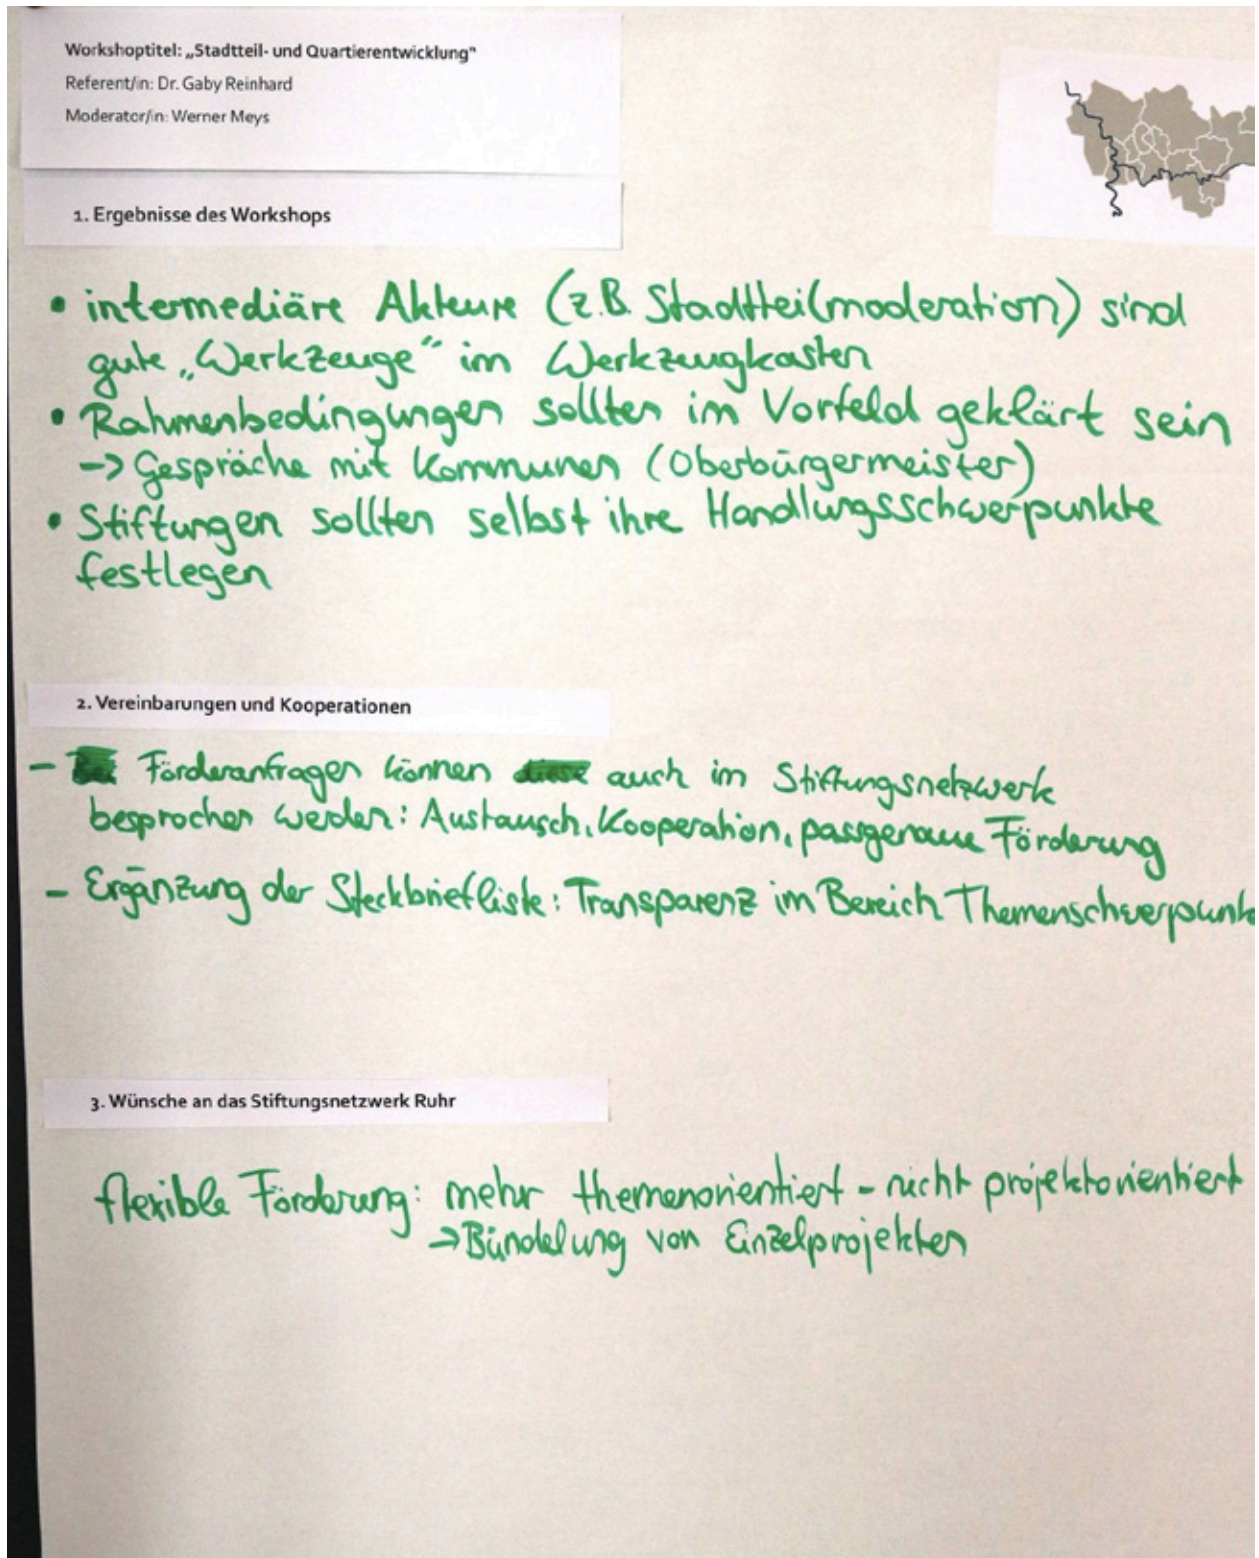 Workshoptitel: „Stadtteil- und Quartierentwicklung"
Referent/in: Dr. Gaby Reinhard
Moderator/in: Werner Meys
1. Ergebnisse des Workshops
• intermediäre Akteure (z.B. Stadtteil(moderation) sind
gute „Werkzeuge" im Werkzeugkasten
• Rahmenbedingungen sollten im Vorfeld geklärt sein
-> Gespräche mit Kommunen (Oberbürgermeister)
• Stiftungen sollten selbst ihre Handlungsschwerpunkte
festlegen
2. Vereinbarungen und Kooperationen
- Förderanfragen können diese auch im Stiftungsnetzwerk
besprochen werden: Austausch, Kooperation, passgenaue Förderung
- Ergänzung der Steckbriefliste: Transparenz im Bereich Themenschwerpunkte
3. Wünsche an das Stiftungsnetzwerk Ruhr
flexible Förderung: mehr themenorientiert - nicht projektorientiert
-> Bündelung von Einzelprojekten